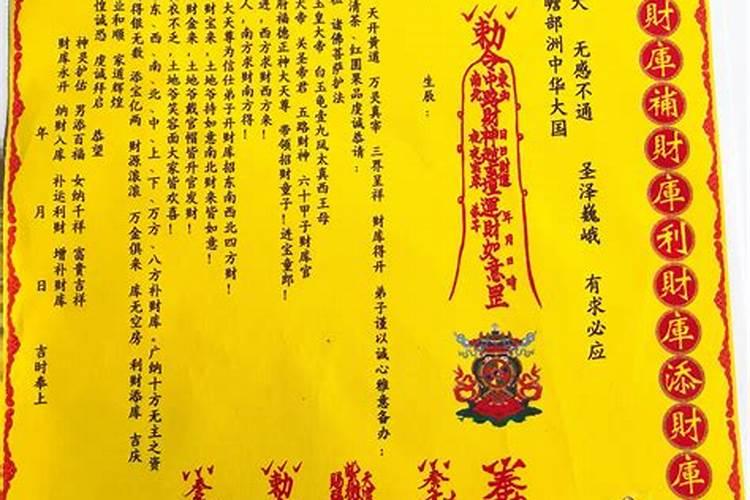 財庫補財庫利財庫添財庫
大　無感不通　聖泽巍峨　有求必应
瞻部洲中华大国
敕令
中路财神赵玄壇運財如意罡
年　月　日　時
生辰：
天开黄道　万灵真宰　三界呈祥　财库得开　弟子谨以诚心雅意备办：
清茶、红圆果品虔诚恭请：
诸佛菩萨护法
玉皇大帝　白玉龟壹九凤太真西王母
大帝　关圣帝君　五路财神　六十甲子财库官
府福德正神大天尊　带领招财童子！进宝童郎！
进，西方求财西方来！
人，南方求财南方得！
大天尊为信仕弟子开财库招东南西北四方财！
财宝来，土地爷持如意南北财来皆如意！
财金来，土地爷戴官帽皆升官发财！
衣不乏，土地爷笑容面大家皆欢喜！
东、西、南、北、中、上、下、万方、八方补财库。广纳十方无主之资
得银无数　添宝亿两　财源滚滚　万金俱来　库无空房　利财添库　吉庆
业和顺　家道辉煌
惶诚恐　虔诚拜启　恭望
神灵护佑　男添百福　女纳千祥　富贵吉祥
财库永开　纳财入库　补运利财　增补财库
年　月　日　吉时奉上
敕